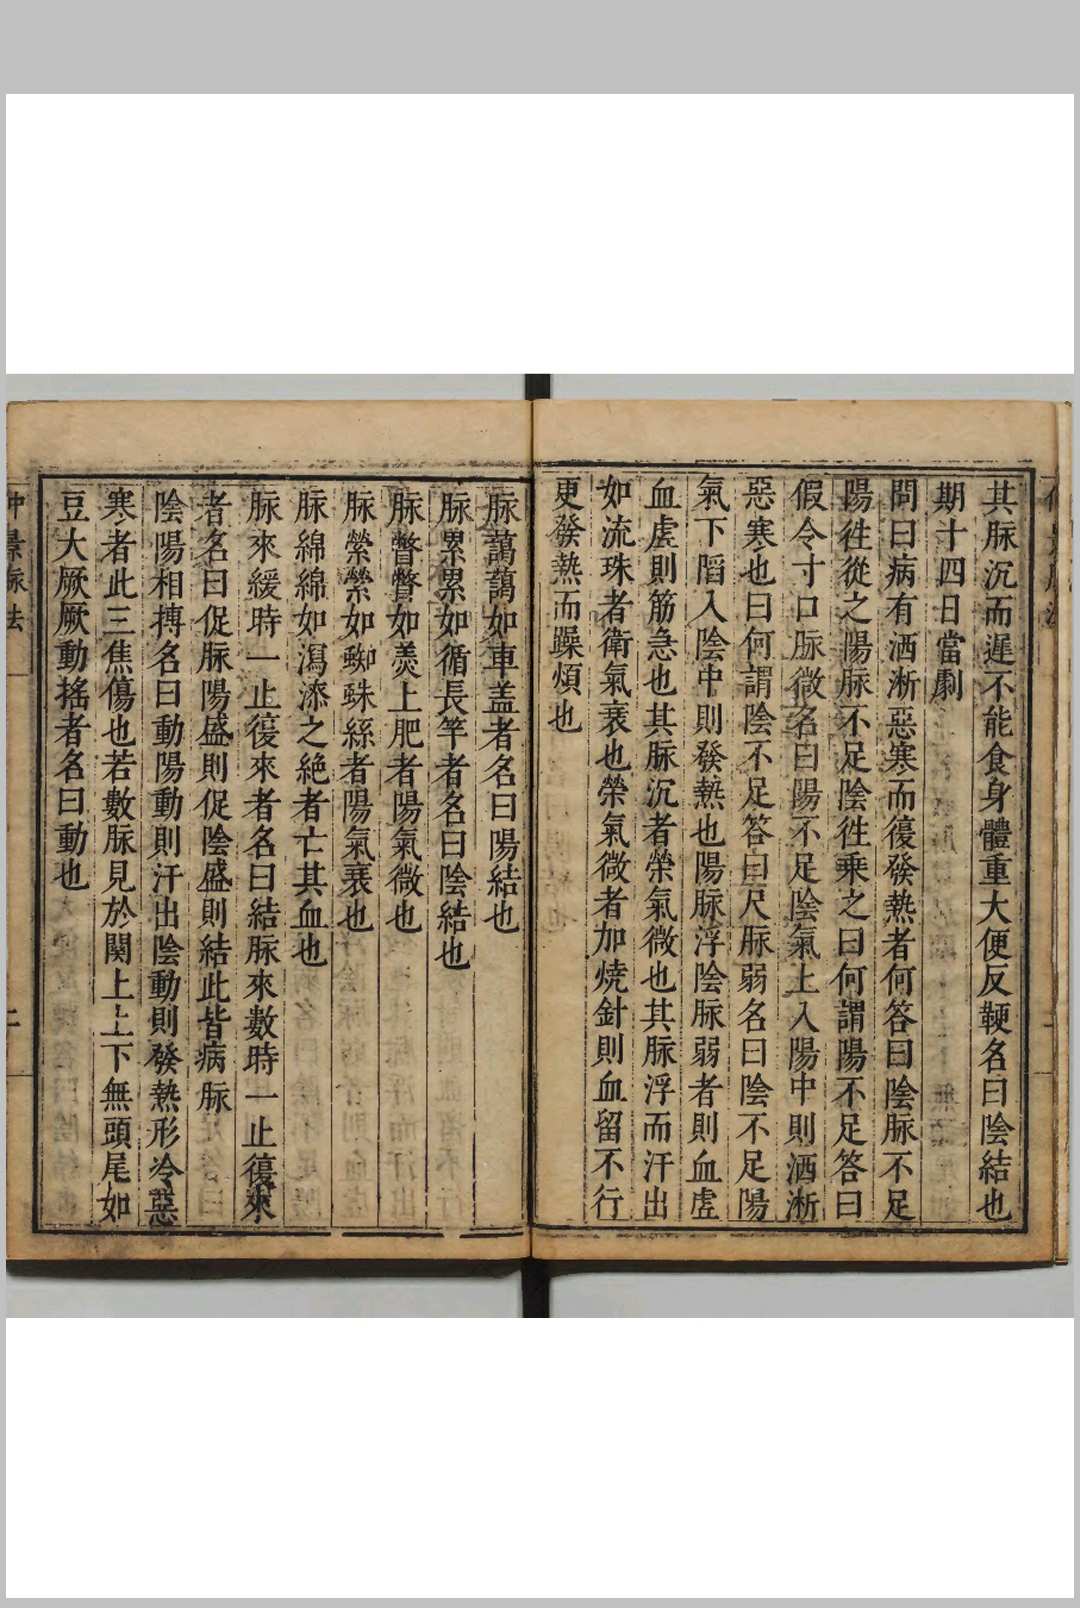 其脉沉而遲不能食身體重大便反鞕名曰陰結也
期十四日當劇
問曰病有洒淅惡寒而復發熱者何答曰陰脉不足
陽徃從之陽脉不足陰徃乘之曰何謂陽不足答曰
假令寸口脉微名曰陽不足陰氣上入陽中則洒淅
惡寒也曰何謂陰不足答曰尺脉弱名曰陰不足陽
氣下陷入陰中則發熱也陽脉浮陰脉弱者則血虛
血虛則筋急也其脉沉者榮氣微也其脉浮而汗出
如流珠者衛氣衰也榮氣微者加燒針則血留不行
更發熱而躁煩也
脉藹藹如車盖者名曰陽結也
脉累累如循長竿者名曰陰結也
脉瞥瞥如羮上肥者陽氣微也
脉縈縈如蜘蛛絲者陽氣衰也
脉綿綿如瀉漆之絶者亡其血也
脉來緩時一止復來者名曰結脉來數時一止復來
者名曰促脉陽盛則促陰盛則結此皆病脉
陰陽相搏名曰動陽動則汗出陰動則發熱形冷惡
寒者此三焦傷也若數脉見於関上上下無頭尾如
豆大厥厥動搖者名曰動也
仲景脉法
二